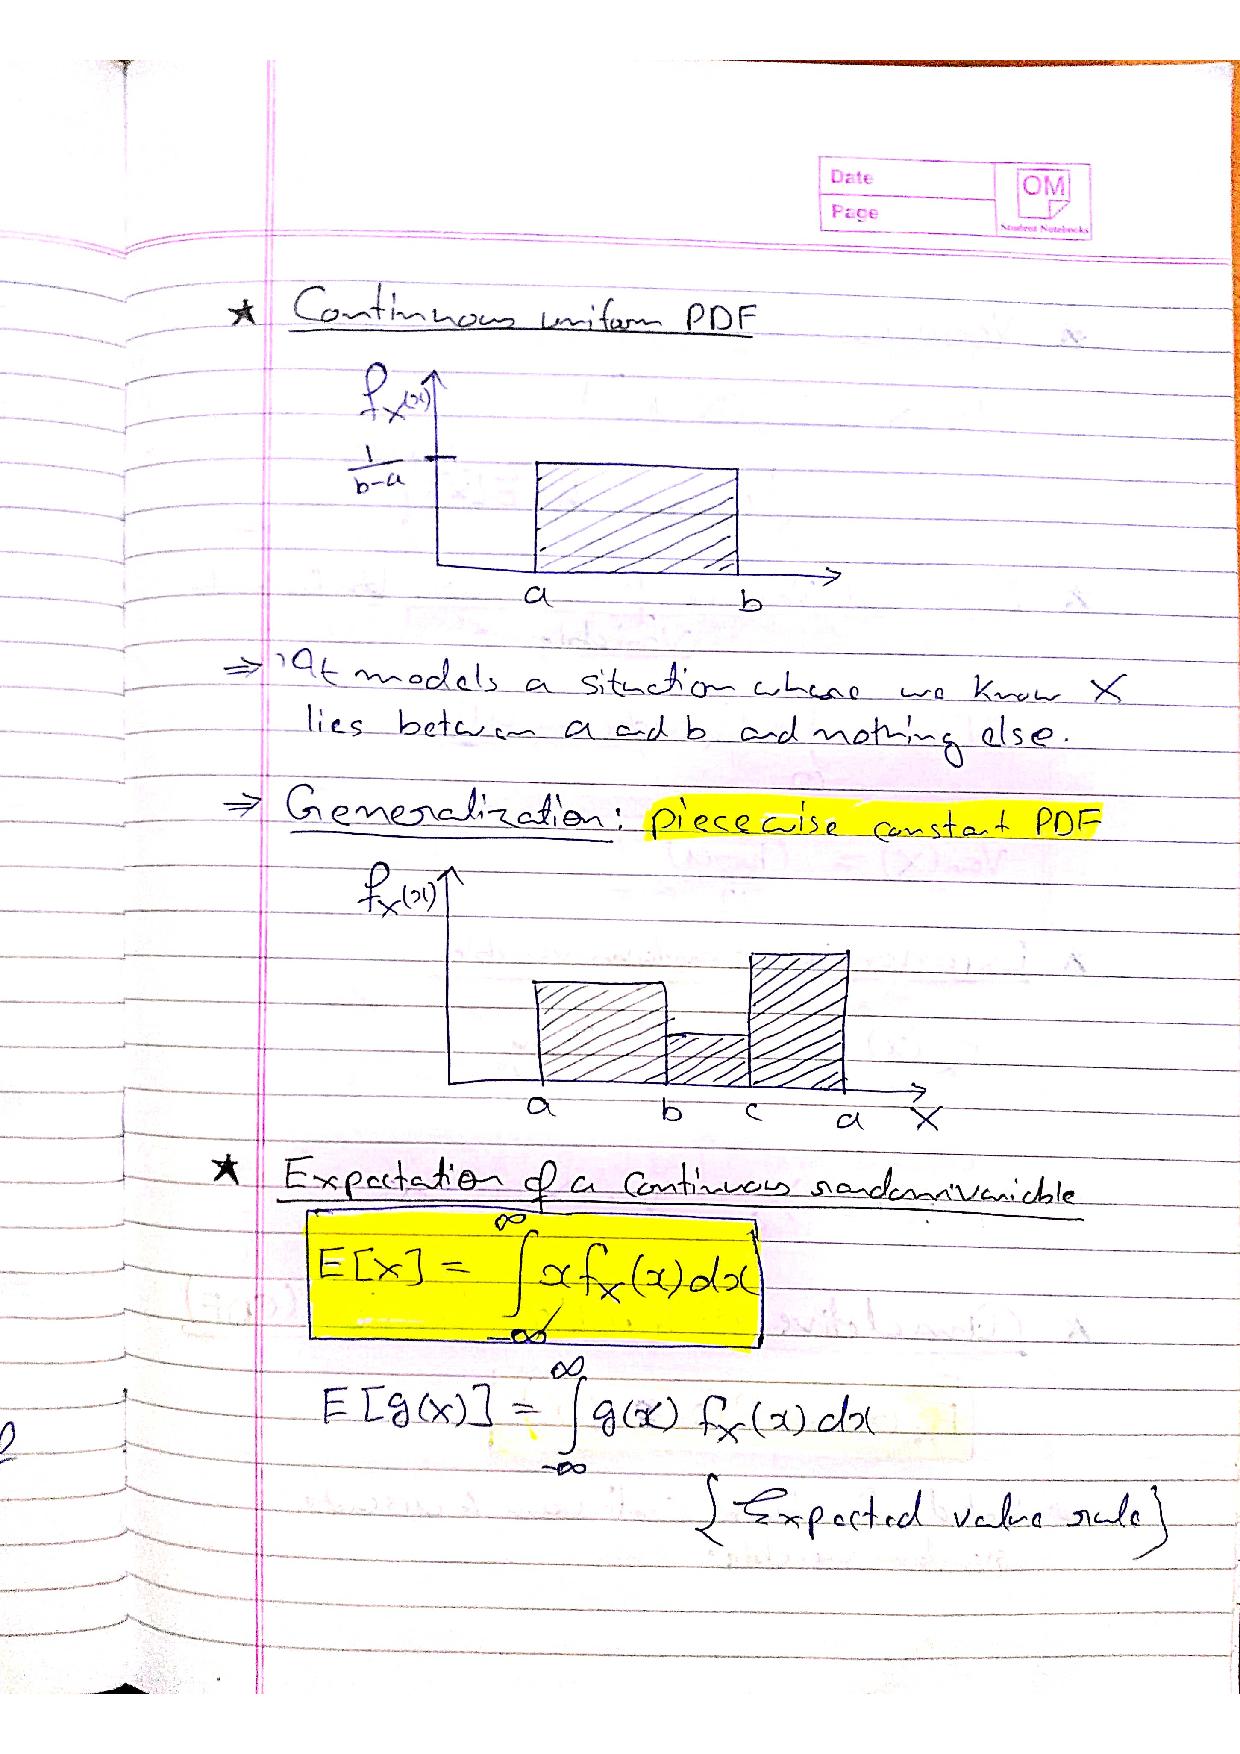 Date
OM
Page
Student Notebooks
★ Continuous uniform PDF
fX(x)
1/(b-a)
a b
⇒ It models a situation where we know X
lies between a and b and nothing else.
⇒ Generalization: piecewise constant PDF
fX(x)
a b c d X
★ Expectation of a continuous random variable
E[X] = ∫_{-∞}^{∞} x fX(x) dx
E[g(X)] = ∫_{-∞}^{∞} g(x) fX(x) dx
{Expected value rule}